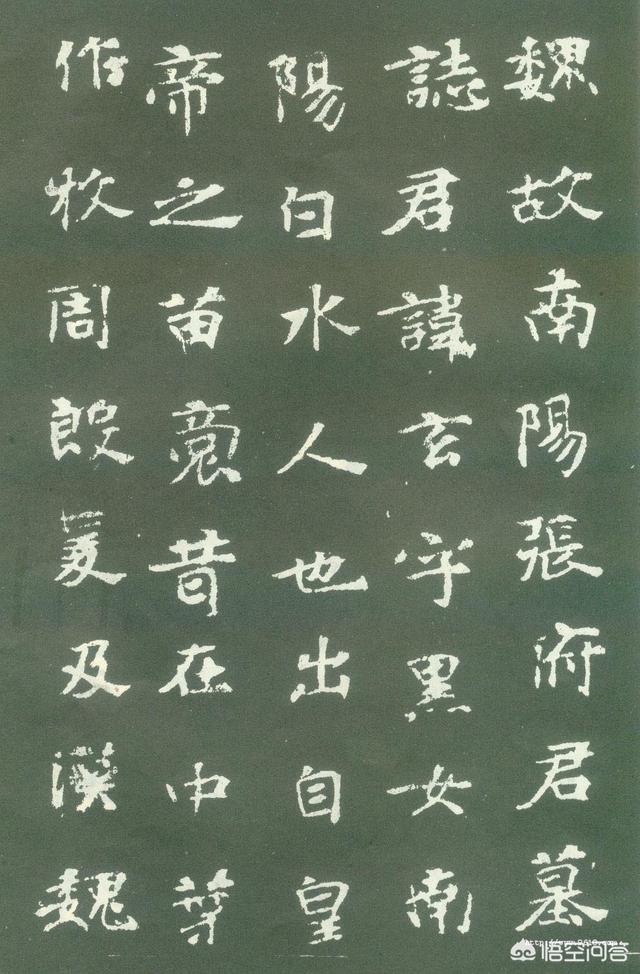 魏故南陽張府君墓
誌君諱玄字黑女南
陽白水人也出自皇
帝之苗裔昔在中葉
作牧周殷爰及漢魏
http://www.9610.com
悟空问答